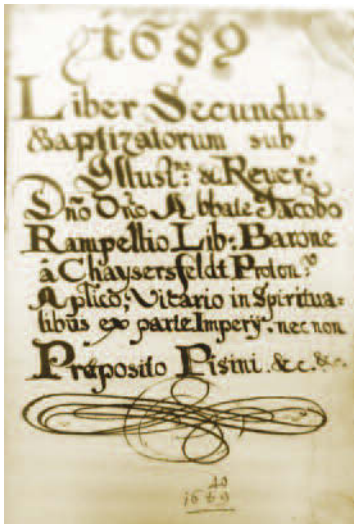 1689
Liber Secundus
Baptizatorum sub
Illust:mo & Rever:mo
Dño Dño Abbate Jacobo
Rampellio Lib: Barone
à Chaysersfeldt Proton:o
Aplico; Vicario in Spiritua=
libus ex parte Impery. nec non
Præposito Pisini. &c. &c.
40
1669